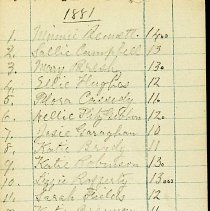 1881
1. Minnie Bennett 14
2. Sallie Campbell 13
3. Mary Walsh 13
4. Effie Hughes 12
5. Flora Cassedy 11
6. Nellie Fitzgibbon 12
7. Josie Garaghan 10
8. Kate Brady 11
9. Katie Robinson 13
10. Lizzie Rafferty 13
11. Sarah Fields 12
12. Kate